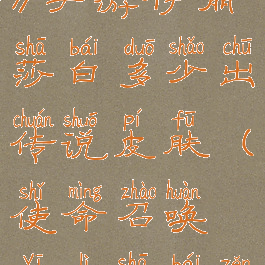 shā bái duō shǎo chū
莎白多少出
chuán shuō pí fū
传说皮肤（
shǐ mìng zhào huàn
使命召唤
yī lì shā bái zěn